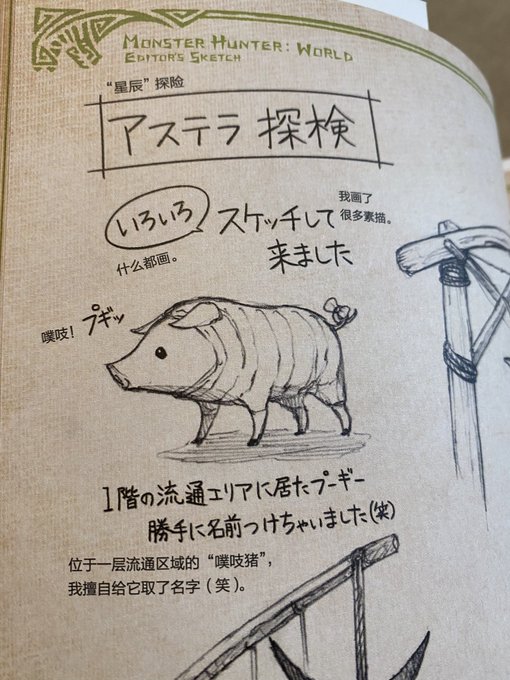 MONSTER HUNTER: WORLD
EDITOR'S SKETCH
“星辰”探险
アステラ 探検
いろいろ
スケッチして
来ました
我画了
很多素描。
什么都画。
噗吱！
プギッ
1階の流通エリアに居たプーギー
勝手に名前つけちゃいました(笑)
位于一层流通区域的“噗吱猪”，
我擅自给它取了名字（笑）。